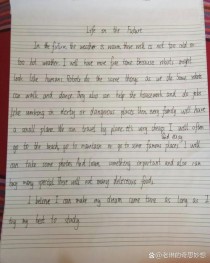 Life in the Future
In the future, the weather is warm, there will is not too cold or
too hot weather. I will have more free time because robots might
look like humans. Robots do the same things as we do, those robots
can write and dance. They also can help the housework and do jobs
like working in dirty or dangerous places. Then every family will have
a small plane. We can travel by plane. It's very cheap. I will often
go to the beach, go to mountains or go to some famous places. I will
can take some photos. And learn something important and also can
buy many special. There will not many delicious food.
I believe I can make my dream come true as long as I
try my best to study.